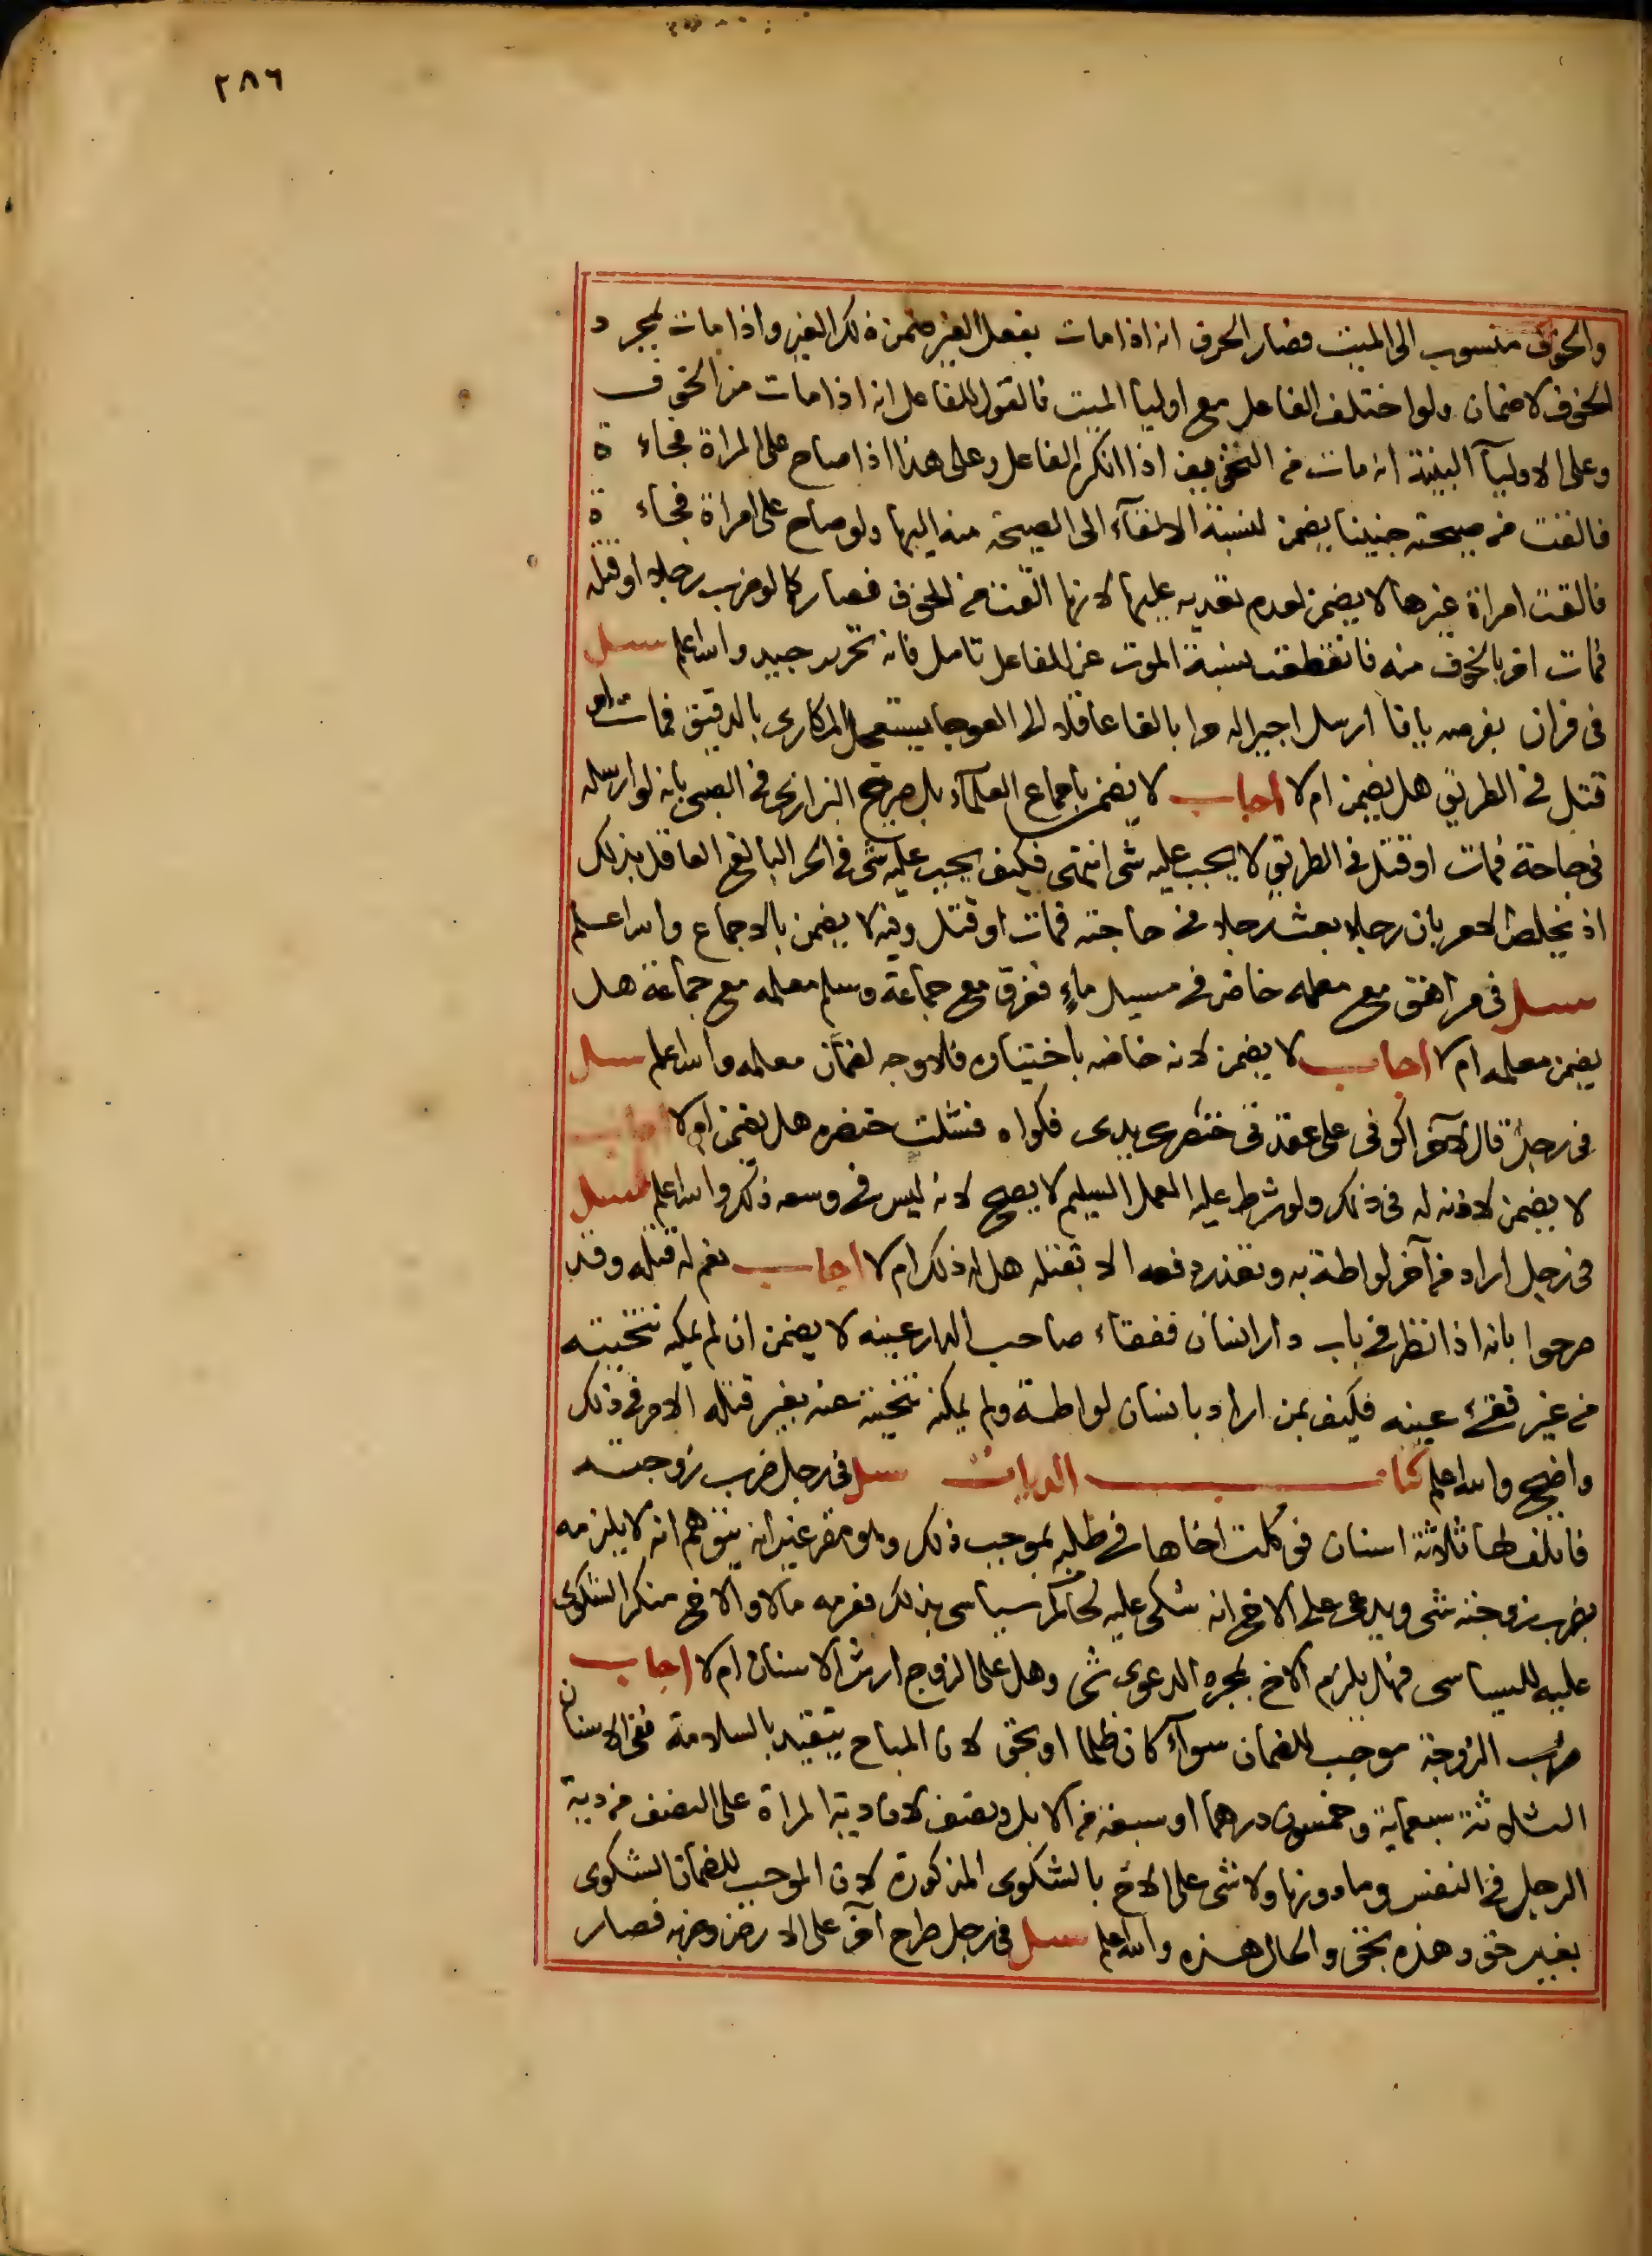 ٢٨٦
والخوف منسوب الى الميت فصار الحرف انه اذا مات بفعل الغير ضمن ذلك الغير واذا مات بمجرد
الخوف لا ضمان ولو اختلف الفاعل مع اوليا الميت فالقول للفاعل انه اذا مات من الخوف
وعلى الاوليآ البينة انه مات من التخويف اذا انكر الفاعل وعلى هذا اذا صاح على المراة فجاءة
فالقت من صيحته جنينا يضمن لنسبة الالقآء الى الصيحة منه اليها ولو صاح على امراة فجاءة
فالقت امراة غيرها لا يضمن لعدم تعديه عليها لانها القت من الخوف فصار كما لو ضرب رجلا او قتله
فمات اخر بالخوف منه فانقطعت نسبة الموت عن الفاعل تامل فانه تحرير جيد والله اعلم سئل
في فران بفرضه يافا ارسل اجيرا له حرا بالغا عاقلا الى العوجا يستعمل المكارى بالدقيق فمات او
قتل في الطريق هل يضمن ام لا اجاب لا يضمن باجماع العلمآء بل صرح البزازى في الصبى بانه لو ارسله
في حاجة فمات او قتل في الطريق لا يجب عليه شى انتهى فكيف يجب عليه شى في الحر البالغ العاقل بذلك
اذ يخلص الامر بان رجلا بعث رجلا في حاجته فمات او قتل وفيه لا يضمن بالاجماع والله اعلم
سئل في مراهق مع معلمه خاض في مسيل ماء فغرق مع جماعة وسلم معلمه مع جماعة هل
يضمن معلمه ام لا اجاب لا يضمن لانه خاضه باختياره فلا وجه لضمان معلمه والله اعلم سئل
في رجل قال لآخر اكوني على عقد في خنصرى بيدى فكواه فشلت خنصره هل يضمن ام لا اجاب
لا يضمن لاذنه له في ذلك ولو شرط عليه العمل السليم لا يصح لانه ليس في وسعه ذلك والله اعلم سئل
في رجل اراد من آخر لواطة به وتعذر دفعه الا بقتله هل له ذلك ام لا اجاب نعم له قتله وقد
صرحوا بانه اذا نظر في باب دار انسان ففقاء صاحب الدار عينه لا يضمن ان لم يمكنه تنحيته
من غير فقىء عينه فكيف بمن اراد بانسان لواطة ولم يمكنه تنحيته عنه بغير قتله الامر في ذلك
واضح والله اعلم كتاب الديات سئل في رجل ضرب زوجته
فاتلف لها ثلاثة اسنان فوكلت اخاها في طلبه بموجب ذلك وهو مقر غير انه يتوهم انه لا يلزمه
بضرب زوجته شى ويدعى على الاخ انه شكى عليه لحاكم سياسى بذلك فغرمه مالا والاخ منكر الشكوى
عليه للسياسى فهل يلزم الاخ بمجرد الدعوى شى وهل على الزوج ارش الاسنان ام لا اجاب
ضرب الزوجة موجب للضمان سوآء كان ظلما او بحق لان المباح يتقيد بالسلامة ففى الاسنان
الثلاثة سبعماية وخمسون درهما او سبعة من الابل ونصف لان دية المراة على النصف من دية
الرجل في النفس وما دونها ولا شى على الاخ بالشكوى المذكورة لان الموجب للضمان الشكوى
بغير حق وهذه بحق والحال هذه والله اعلم سئل في رجل طرح آخر على الارض وضربه فصار